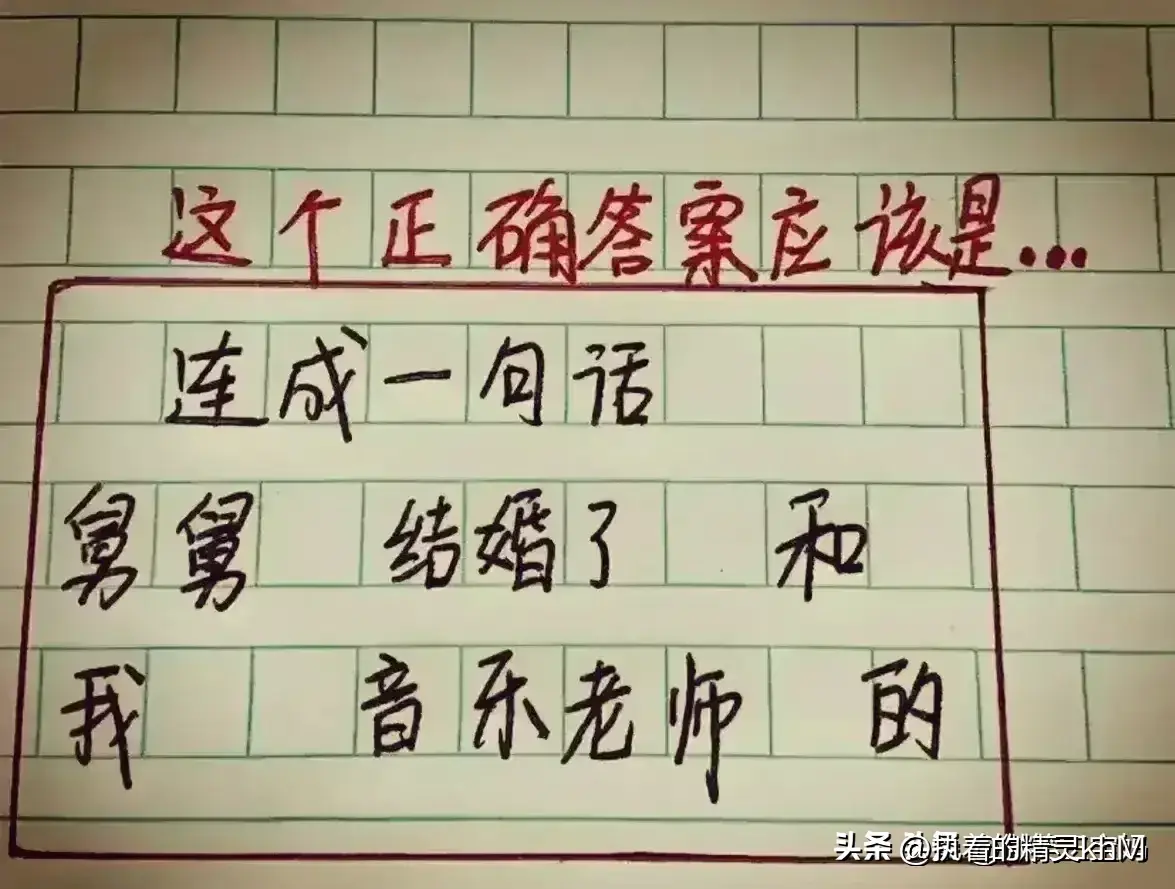 这个正确答案应该是...
连成一句话
舅舅 结婚了 和
我 音乐老师 的
头条 @执着的精灵